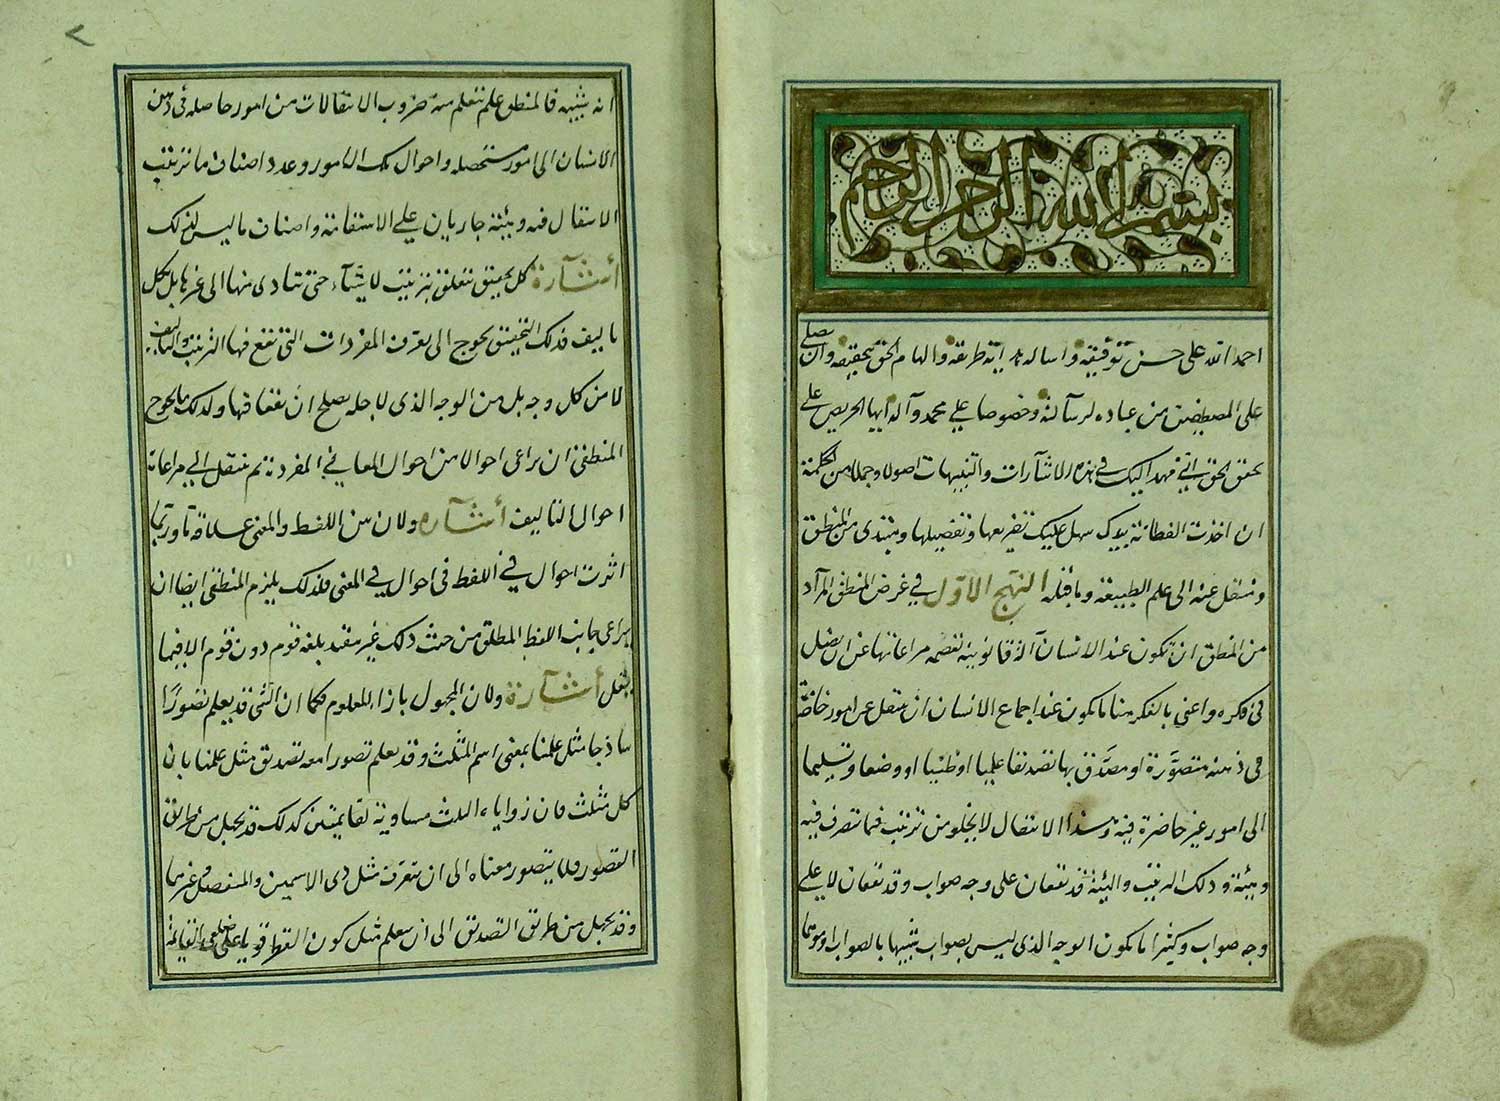 بسم الله الرحمن الرحيم
احمد الله على حسن توفيقه واساله هداية طريقه والهام الحق بتحقيقه وان يصلى
على المصطفين من عباده لرسالته وخصوصا على محمد وآله ايها الحريص على
تحقق الحق انى مهد اليك فى هذه الاشارات والتنبيهات اصولا وجملا من الحكمة
ان اخذت الفطانة بيدك سهل عليك تفريعها وتفصيلها ومبتدى من المنطق
ومنتقل عنه الى علم الطبيعة وما قبله النهج الاول فى غرض المنطق المراد
من المنطق ان تكون عند الانسان آلة قانونية تعصمه مراعاتها عن ان يضل
فى فكره واعنى بالفكر هنا ما يكون عند اجماع الانسان ان ينتقل عن امور حاضرة
فى ذهنه متصورة او مصدق بها تصديقا علميا او ظنيا او وضعا وتسليما
الى امور غير حاضرة فيه وهذا الانتقال لا يخلو من ترتيب فيما يتصرف فيه
وهيئة وذلك الترتيب والهيئة قد تقعان على وجه صواب وقد تقعان لا على
وجه صواب وكثيرا ما يكون الوجه الذى ليس بصواب شبيها بالصواب او موهما
انه شبيه فالمنطق علم يتعلم منه ضروب الانتقالات من امور حاصله فى ذهن
الانسان الى امور مستحصله واحوال تلك الامور وعدد اصناف ما ترتيب
الانتقال فيه وهيئته جاريان على الاستقامة واصناف ما ليس كذلك
اشارة كل تحقيق يتعلق بترتيب الاشياء حتى يتادى منها الى غيرها بل بكل
تاليف فذلك التحقيق يحوج الى تعرف المفردات التى تقع فيها الترتيب والتاليف
لا من كل وجه بل من الوجه الذى لاجله يصلح ان تقعا فيها ولذلك ما يحوج
المنطقى ان يراعى احوالا من احوال المعانى المفردة ثم ينتقل الى مراعاة
احوال التاليف اشارة ولان بين اللفظ والمعنى علاقة ما وربما
اثرت احوال فى اللفظ فى احوال فى المعنى فلذلك يلزم المنطقى ايضا ان
يراعى جانب اللفظ المطلق من حيث ذلك غير مقيد بلغة قوم دون قوم الا فيما
يقل اشارة ولان المجهول بازاء المعلوم فكما ان الشى قد يعلم تصورا
ساذجا مثل علمنا بمعنى اسم المثلث وقد يعلم تصورا معه تصديق مثل علمنا بان
كل مثلث فان زواياه الثلث مساوية لقايمتين كذلك قد يجهل من طريق
التصور فلا يتصور معناه الى ان يتعرف مثل ذى الاسمين والمنفصل وغيرهما
وقد يجهل من طريق التصديق الى ان يتعلم مثل كون القطر قويا على ضلعى القايمة